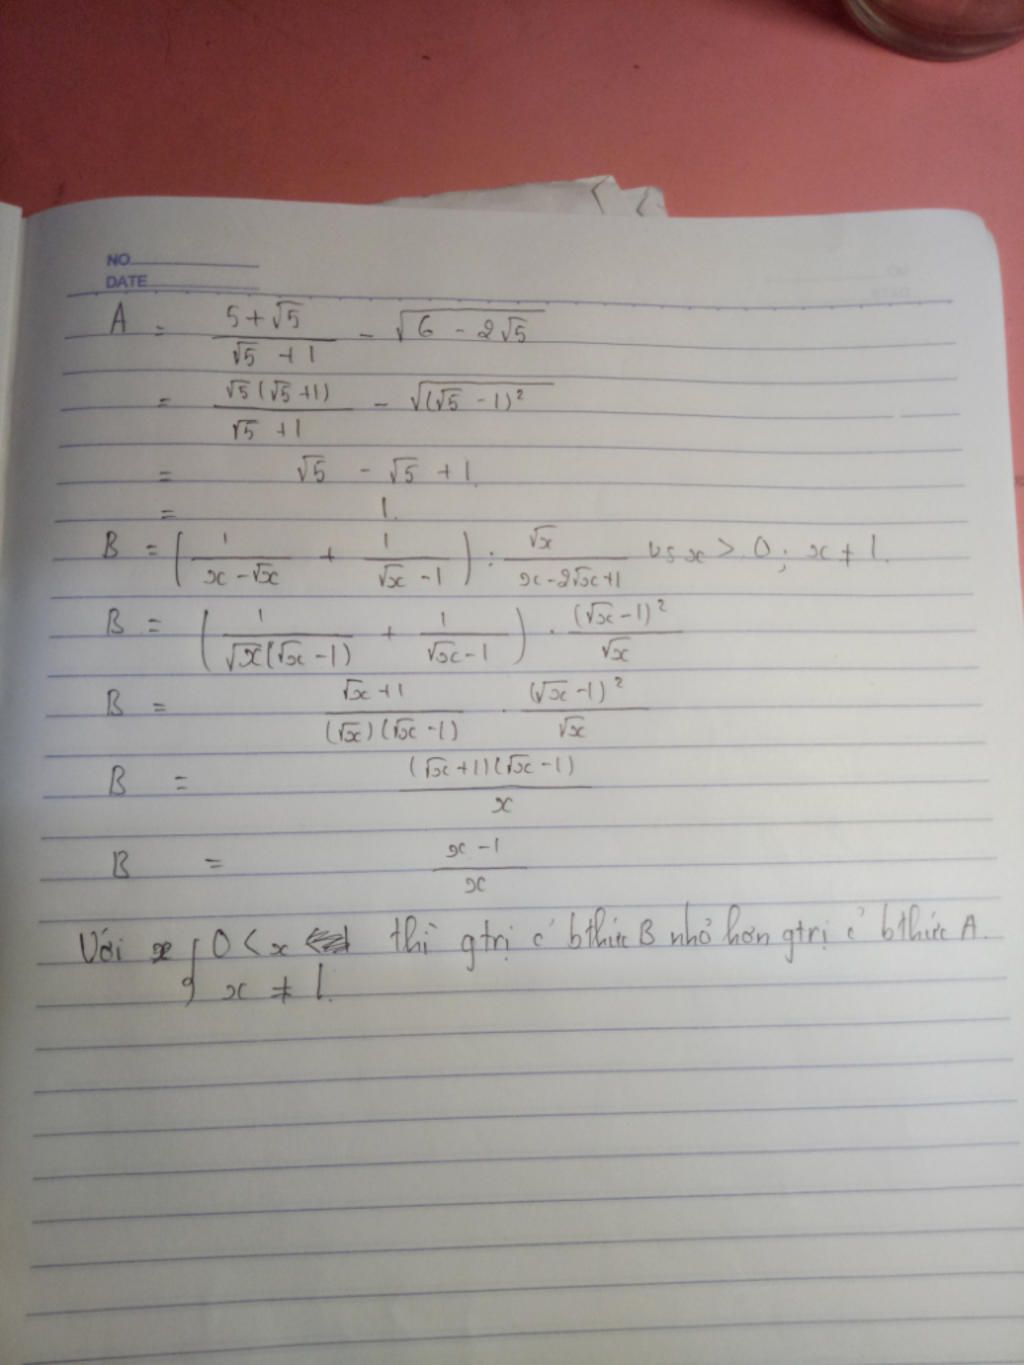 NO
DATE
A = \frac{5+\sqrt{5}}{\sqrt{5}+1} - \sqrt{6-2\sqrt{5}}
= \frac{\sqrt{5}(\sqrt{5}+1)}{\sqrt{5}+1} - \sqrt{(\sqrt{5}-1)^2}
= \sqrt{5} - \sqrt{5} + 1
= 1.
B = (\frac{1}{x-\sqrt{x}} + \frac{1}{\sqrt{x}-1}) : \frac{\sqrt{x}}{x-2\sqrt{x}+1} vs x > 0; x ≠ 1.
B = (\frac{1}{\sqrt{x}(\sqrt{x}-1)} + \frac{1}{\sqrt{x}-1}) . \frac{(\sqrt{x}-1)^2}{\sqrt{x}}
B = \frac{\sqrt{x}+1}{(\sqrt{x})(\sqrt{x}-1)} . \frac{(\sqrt{x}-1)^2}{\sqrt{x}}
B = \frac{(\sqrt{x}+1)(\sqrt{x}-1)}{x}
B = \frac{x-1}{x}
Với x { 0 < x thì gtrị c̉ bthức B nhỏ hơn gtrị c̉ bthức A.
x ≠ 1.